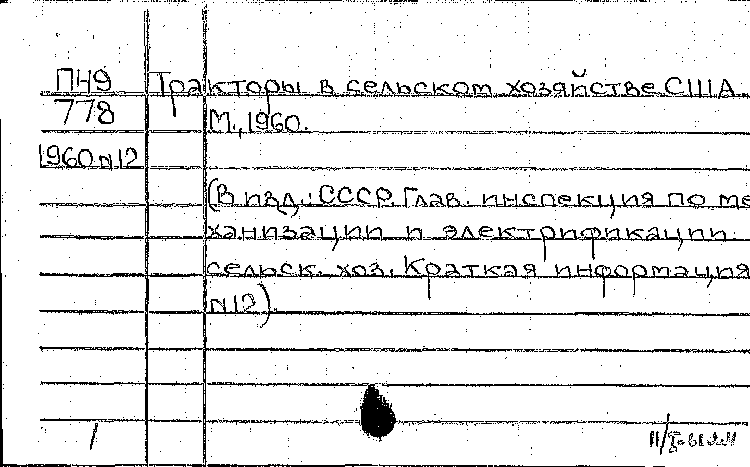 ПН9 Тракторы в сельском хозяйстве США.
778 М., 1960.
1960 N12
(В изд.: СССР. Глав. инспекция по ме
ханизации и электрификации
сельск. хоз. Краткая информация
N12).